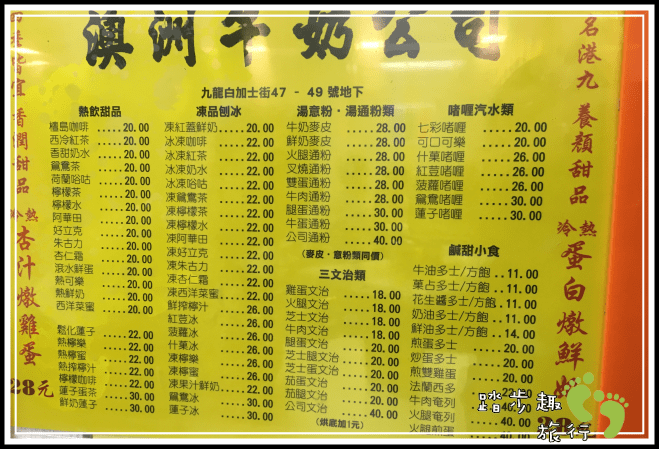 澳洲牛奶公司
九龍白加士街47 - 49 號地下
熱飲甜品
檀島咖啡 ..... 20.00
西冷紅茶 ..... 20.00
香甜奶水 ..... 20.00
鴛鴦茶 ..... 20.00
荷蘭哈咕 ..... 20.00
檸檬茶 ..... 20.00
檸檬水 ..... 20.00
阿華田 ..... 20.00
好立克 ..... 20.00
朱古力 ..... 20.00
杏仁霜 ..... 20.00
滾水鮮蛋 ..... 20.00
熱可樂 ..... 20.00
熱鮮奶 ..... 20.00
西洋菜蜜 ..... 20.00
鬆化蓮子 ..... 22.00
熱檸樂 ..... 22.00
熱檸蜜 ..... 22.00
熱鮮檸汁 ..... 22.00
檸檬咖啡 ..... 22.00
蓮子蛋茶 ..... 30.00
鮮奶蓮子 ..... 30.00
凍品刨冰
凍紅蓋鮮奶 ..... 20.00
冰凍咖啡 ..... 22.00
冰凍紅茶 ..... 22.00
冰凍奶水 ..... 22.00
冰凍哈咕 ..... 22.00
凍鴛鴦茶 ..... 22.00
凍檸檬茶 ..... 22.00
凍檸檬水 ..... 22.00
凍阿華田 ..... 22.00
凍好立克 ..... 22.00
凍朱古力 ..... 22.00
凍杏仁霜 ..... 22.00
凍西洋菜蜜 ..... 22.00
鮮搾檸汁 ..... 22.00
紅荳冰 ..... 26.00
菠蘿冰 ..... 26.00
什菓冰 ..... 26.00
凍檸樂 ..... 26.00
凍檸蜜 ..... 26.00
凍果汁鮮奶 ..... 22.00
鴛鴦冰 ..... 30.00
蓮子冰 ..... 30.00
湯意粉・湯通粉類
牛奶麥皮 ..... 28.00
鮮奶麥皮 ..... 28.00
火腿通粉 ..... 28.00
叉燒通粉 ..... 28.00
雙蛋通粉 ..... 28.00
牛肉通粉 ..... 28.00
腿蛋通粉 ..... 30.00
牛蛋通粉 ..... 30.00
公司通粉 ..... 40.00
(麥皮・意粉類同價)
三文治類
雞蛋文治 ..... 18.00
火腿文治 ..... 18.00
芝士文治 ..... 18.00
牛肉文治 ..... 18.00
腿蛋文治 ..... 20.00
芝士腿文治 ..... 20.00
芝士蛋文治 ..... 20.00
茄蛋文治 ..... 20.00
茄腿文治 ..... 20.00
公司文治 ..... 40.00
(烘底加1元)
啫喱汽水類
七彩啫喱 ..... 20.00
可口可樂 ..... 20.00
什菓啫喱 ..... 26.00
紅荳啫喱 ..... 26.00
菠蘿啫喱 ..... 26.00
鴛鴦啫喱 ..... 30.00
蓮子啫喱 ..... 30.00
鹹甜小食
牛油多士/方飽 .. 11.00
菓占多士/方飽 .. 11.00
花生醬多士/方飽 .. 11.00
奶油多士/方飽 .. 11.00
鮮油多士/方飽 .. 14.00
煎蛋多士 ..... 20.00
炒蛋多士 ..... 20.00
煎雙雞蛋 ..... 20.00
法蘭西多
牛肉奄列
火腿奄列 ..... 40.00
火腿煎蛋
名港九 養顏甜品
冷熱 蛋白燉鮮奶
皆宜 香潤甜品
冷熱 杏汁燉雞蛋
28元
踏步趣
旅行